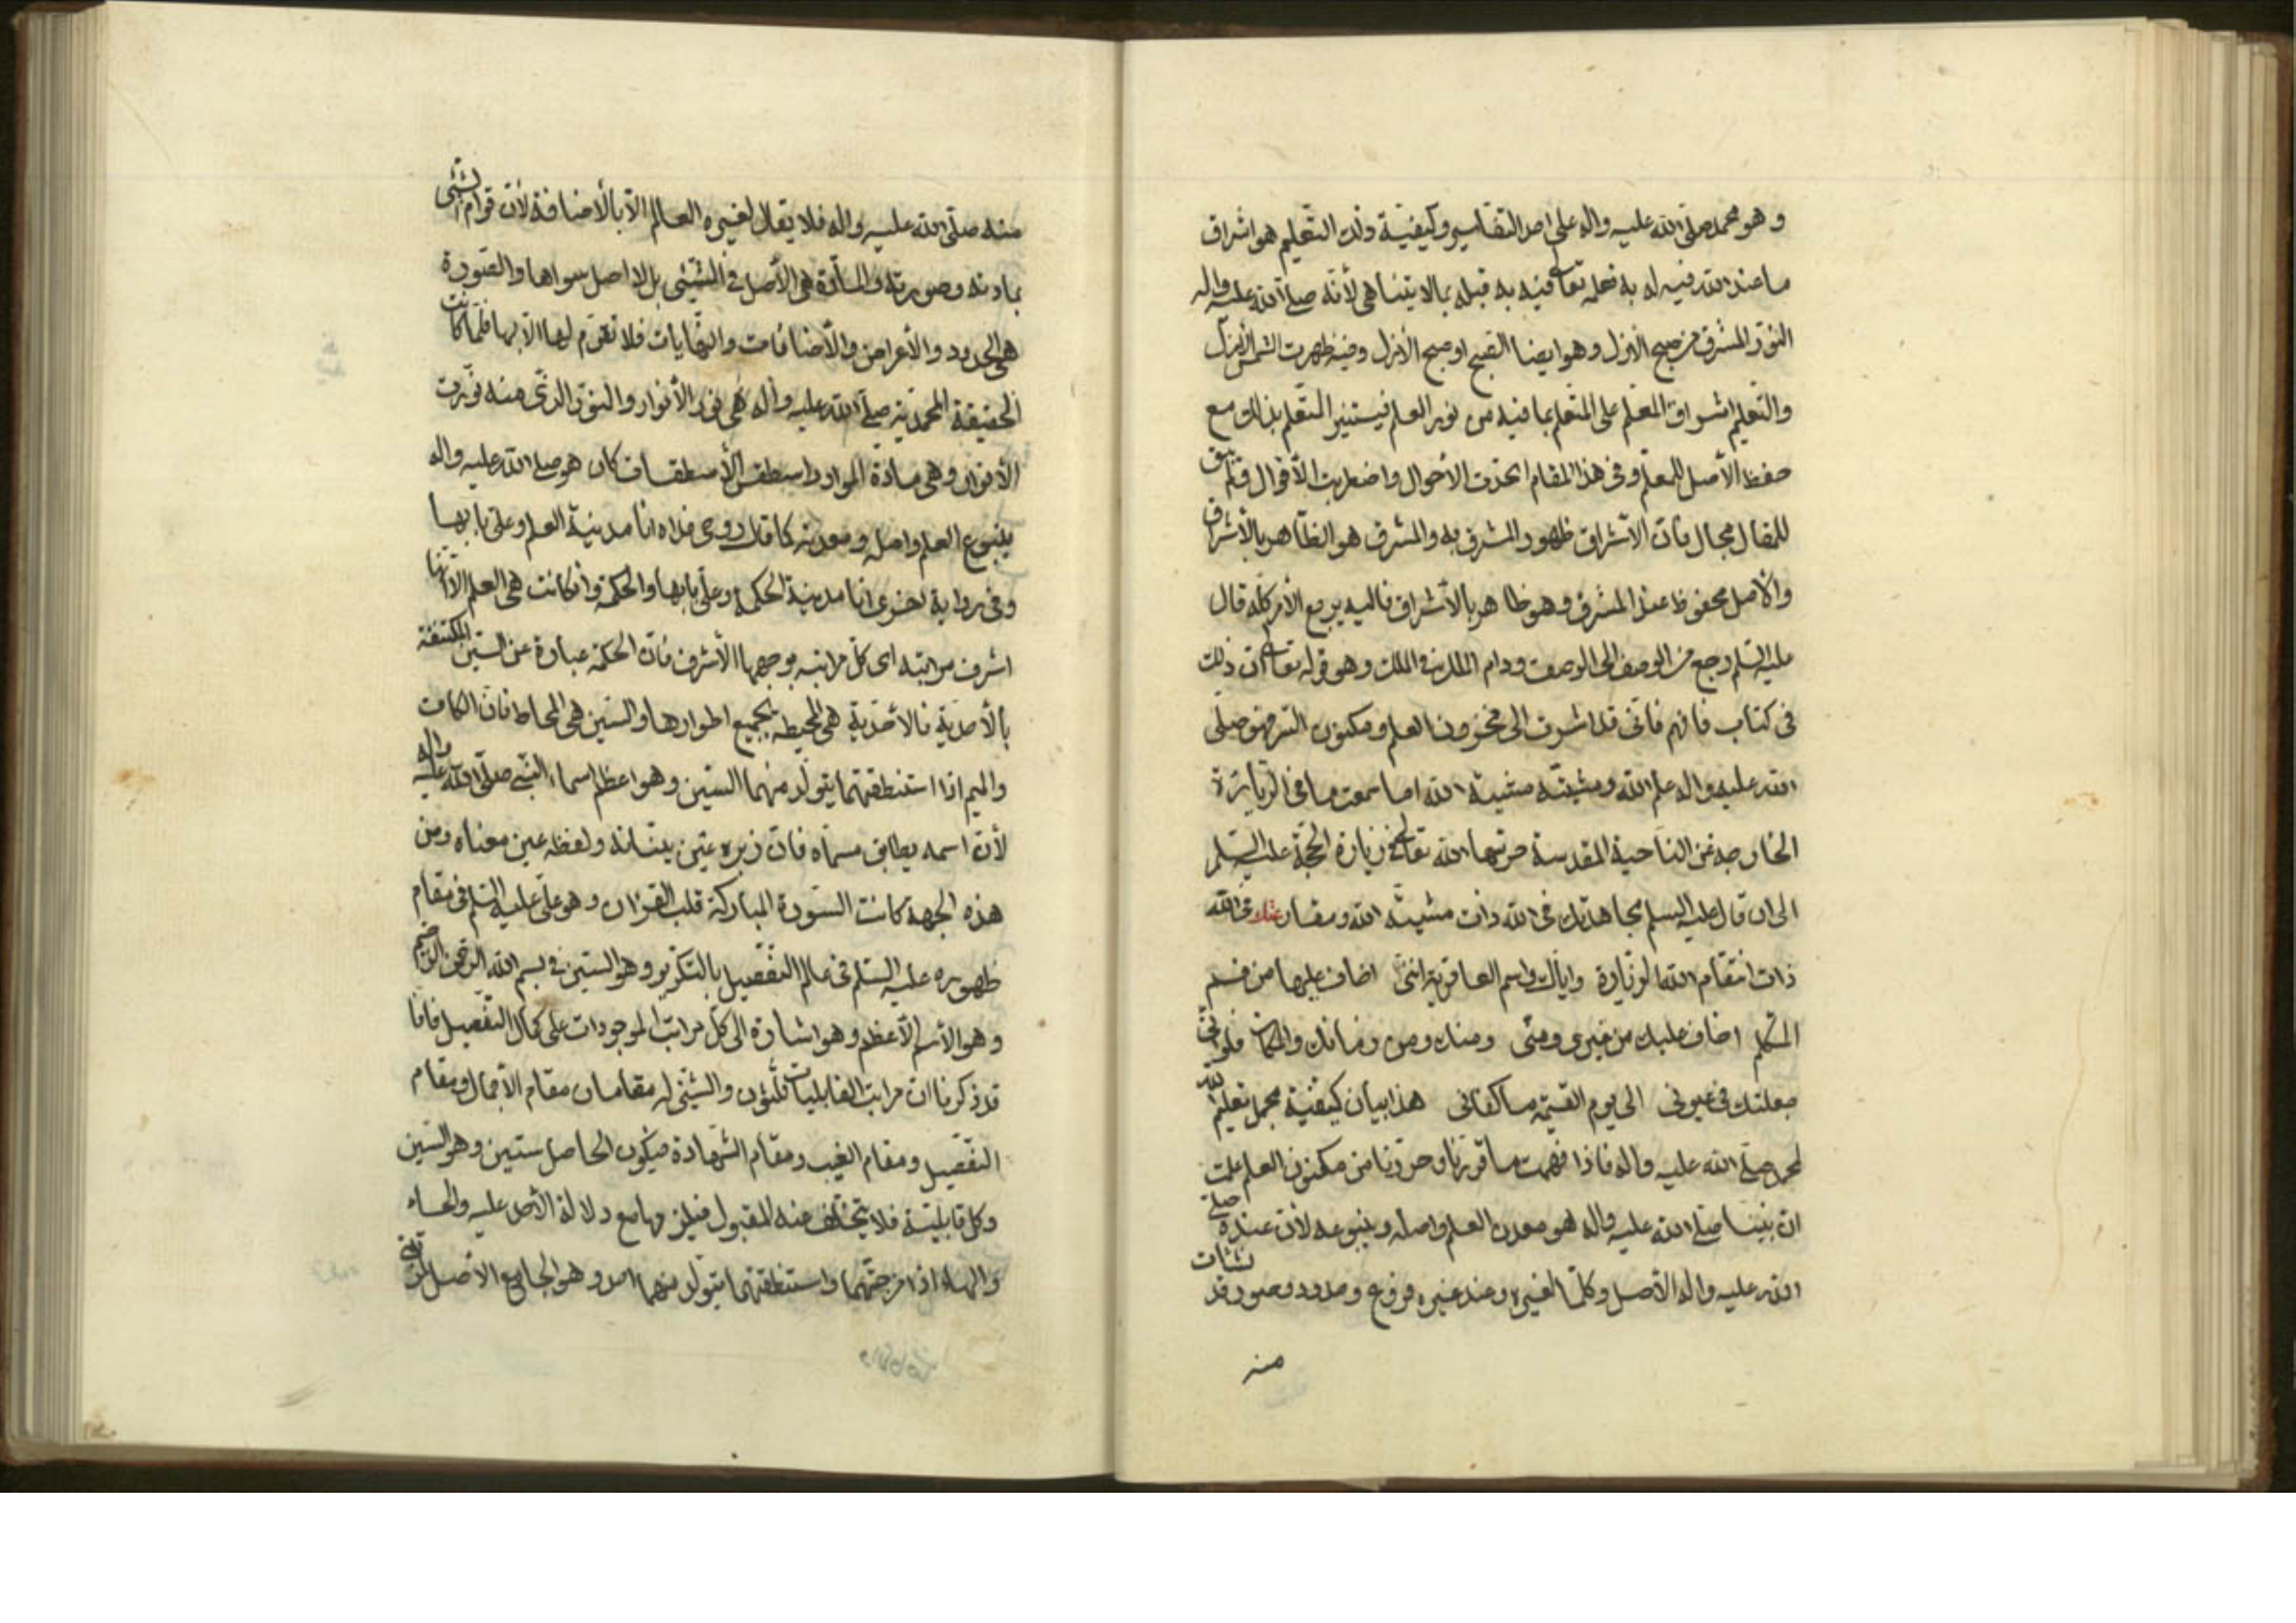 و هو محمد صلّى الله عليه واله على احد التفاسير وكيفيّة ذلك التّعليم هو اشراق
ما عند الله فيه له به فعلمه تعالى فيه به قبله بما لا يتناهى لأنّه صلّى الله عليه واله
النّور المشرق من صبح الازل وهو ايضا الصّبح او صبح الأزل وفيه ظهرت الشمس الأزل
والتّعليم اشراق المعلّم على المتعلّم بما فيه من نور العلم فيستنير المتعلّم بذلك مع
حفظ الأصل للمعلّم وفى هذا المقام اتّحدت الأحوال واضطربت الأقوال فلم يبق
للمقال مجال فانّ الأشراق ظهور المشرق به والمشرق هو الظّاهر بالأشراق
والأصل محفوظ عند المشرق وهو ظاهر بالأشراق فاليه يرجع الأمر كلّه قال
عليه السّلم رجع من الوصف الى الوصف ودام الملك فى الملك وهو قوله تعالى انّ ذلك
فى كتاب فافهم فانّى قد اشرت الى مخزون العلم ومكنون السّر فهو صلّى
الله عليه واله علم الله ومشيّته مشيّة الله اما سمعت ما فى الزّيارة
الخارجة عن النّاحية المقدسة حرسها الله تعالى فى زيارة الحجّة عليه السّلم
الى ان قال عليه السلم مجاهدتك فى الله ذات مشيّة الله ومقارعتك فى الله
ذات انتقام الله الزّيارة واياك واسم العامريّة انّنى اضاف عليها من فم
المتكلّم اخاف عليك من غيرى ومنّى ومنك ومن زمانك والمكان فلو انّى
جعلتك فى عيونى الى يوم القيمة ما كفانى هذا بيان كيفيّة مجمل تعليم الله
لمحمد صلّى الله عليه واله فاذا فهمت ما قرّرنا وحرّرنا من مكنون العلم علمت
انّ نبيّنا صلّى الله عليه واله هو معدن العلم واصله وينبوعه لأنّ عنده صلّى
الله عليه واله الأصل وكلّما لغيره وعند غيره فروع وحدود وصور قد نشأت
منه
منه صلّى الله عليه واله فلا يقال لغيره العالم الّا بالأضافة لأنّ قوام الشّئ
بمادته وصورته والمادّة هى الأصل فى الشّيئ بل لا اصل سواها والصّورة
هى الحدود والأعراض والأضافات والنّهايات فلا تقوّم لها الّا بها فلمّا كانت
الحقيقة المحمّدية صلّى الله عليه واله هى نور الأنوار والنّور الذّى منه نوّرت
الأنوار وهى مادّة المواد واسطقس الأسطقسات كان هو صلّى الله عليه واله
ينبوع العلم واصله ومعدنه كما قال روحى فداه انا مدينة العلم وعلىّ بابها
وفى رواية اخرى انا مدينة الحكمة وعلىّ بابها والحكمة وان كانت هى العلم الّا انّها
اشرف مراتبه اى كلّ مراتبه بوجهها الأشرف فانّ الحكمة عبارة عن السّين المكتنفة
بالأحديّة فالأحديّة هى المحيطة بجميع اطوارها والسّين هى المحاط فانّ الكاف
والميم اذا استنطقتهما يتولّد منهما السّين وهو اعظم اسماء النّبى صلّى الله عليه واله
لأنّ اسمه يطابق مسمّاه فانّ زبره عين بيّناته ولفظه عين معناه ومن
هذه الجهة كانت السّورة المباركة قلب القرآن وهو علىّ عليه السّلم فى مقام
ظهوره عليه السّلم فى عالم التّفصيل بالتّكرير وهو السّين فى بسم الله الرّحمن الرّحيم
وهو الأسم الأعظم وهو اشارة الى كلّ مراتب الموجودات على كمال التّفصيل فانّا
قد ذكرنا انّ مراتب القابليات ثلثون والشّيئ له مقامان مقام الأجمال ومقام
التّفصيل ومقام الغيب ومقام الشّهادة فيكون الحاصل ستّين وهو السّين
وكل قابليّة فلا يتخلّف عنه المقبول فيلزمها مع دلالة الأصل عليه والحاء
والهاء اذا مزجتهما واستنطقتهما يتولّد منهما احد وهو الجامع الأصل